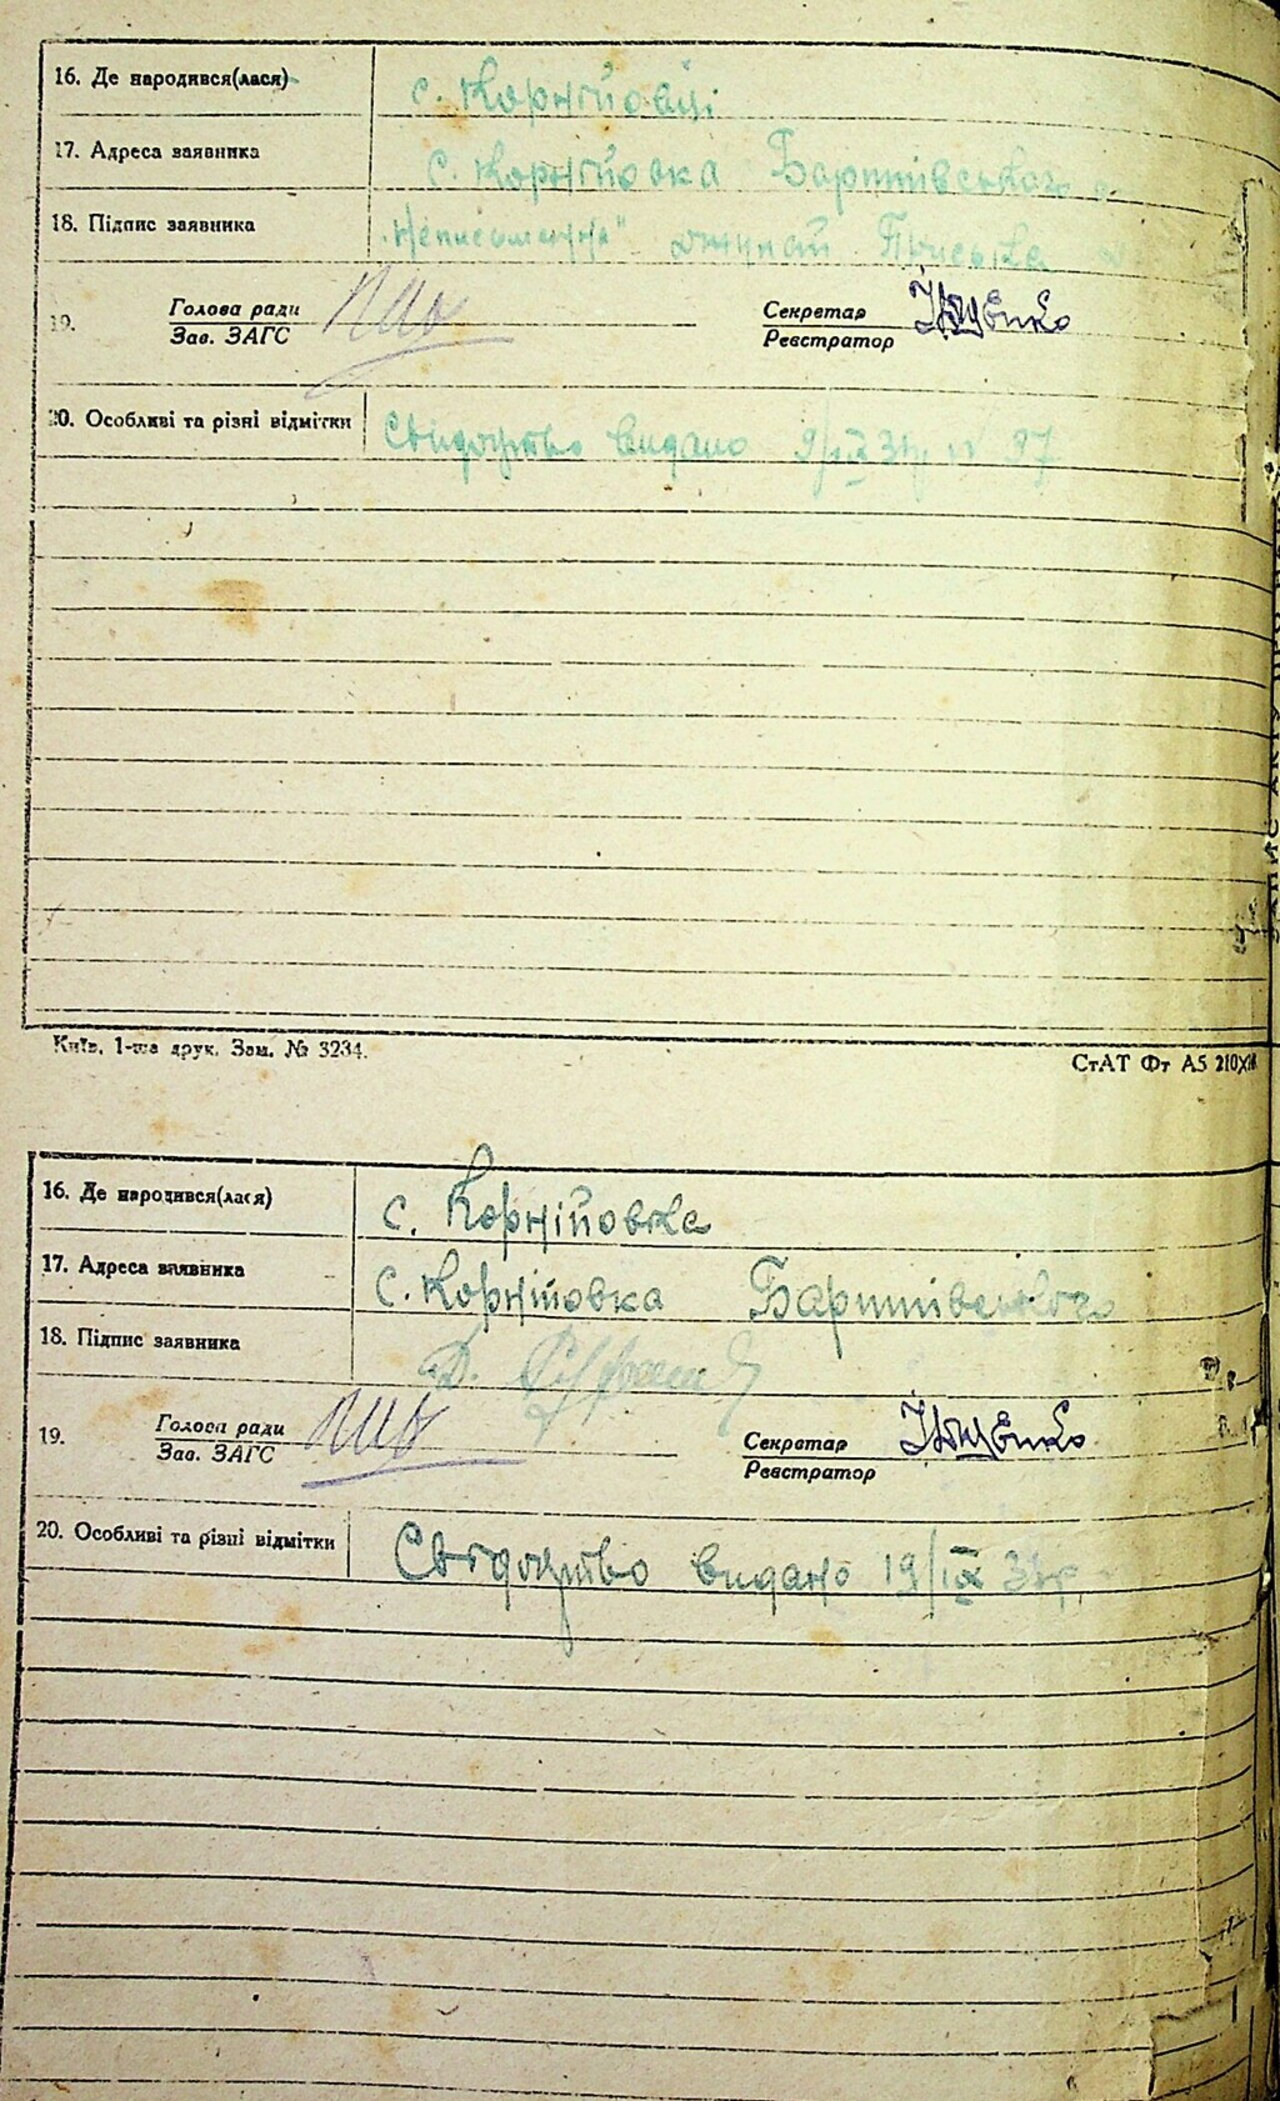 16. Де народився(лася) с. Корнійовці
17. Адреса заявника с. Корнійовка Баришівського
18. Підпис заявника "Неписьменна"
19. Голова ради Секретар Ющенко
Зав. ЗАГС Реєстратор
20. Особливі та різні відмітки Свидоцтво видано 9/IX 31р N 97
Київ. 1-ша друк. Зам. № 3234.
СтАТ Фт А5 210X
16. Де народився(лася) с. Корнійовка
17. Адреса заявника с. Корнійовка Баришівського
18. Підпис заявника
19. Голова ради Секретар Ющенко
Зав. ЗАГС Реєстратор
20. Особливі та різні відмітки Свідоцтво видано 19/IX